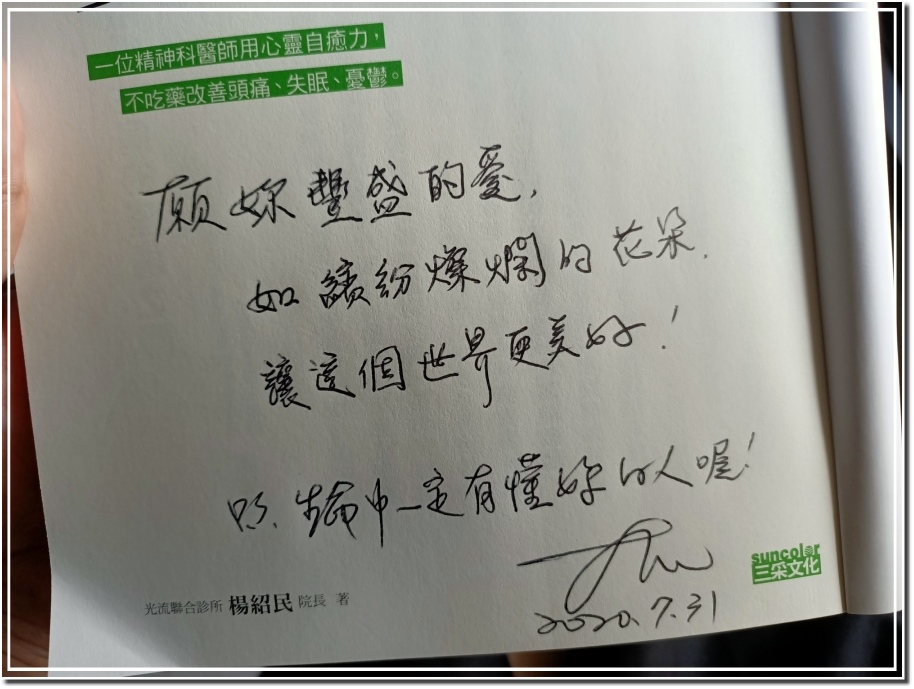 一位精神科醫師用心靈自癒力，
不吃藥改善頭痛、失眠、憂鬱。
願妳豐盛的愛，
如繽紛燦爛的花朵，
讓這個世界更美好！
P.S. 生命中一定有懂妳的人喔！
2020.7.31
suncolor
三采文化
光流聯合診所 楊紹民 院長 著